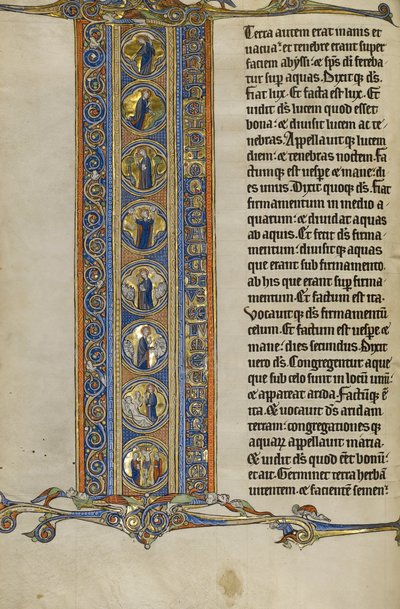 Terra autem erat inanis et
uacua: et tenebre erant super
faciem abyssi: et sps di fereba
tur sup aquas. Dixit qz ds.
Fiat lux. Et facta est lux. Et
uidit ds lucem quod esset
bona: et diuisit lucem ac te
nebras. Appellauit qz lucem
diem: et tenebras noctem. Fa
ctumqz est uespe et mane: di
es unus. Dixit quoqz ds. Fiat
firmamentum in medio a
quarum: et diuidat aquas
ab aquis. Et fecit ds firma
mentum: diuisit qz aquas
que erant sub firmamento.
ab his que erant sup firma
mentum. Et factum est ita.
Vocauit qz ds firmamentum
celum. Et factum est uespe et
mane: dies secundus. Dixit
uero ds. Congregentur aque
que sub celo sunt in locu unu:
et appareat arida. Factuqz e
ita. et uocauit ds aridam
terram: congregationes qz
aquaz appellauit maria.
Et uidit ds quod eet bonu:
et ait. Germinet terra herba
uirentem. et faciente semen: